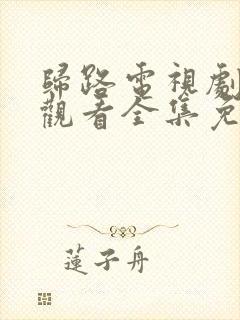 歸路電視劇
觀看全集免
蓮子舟